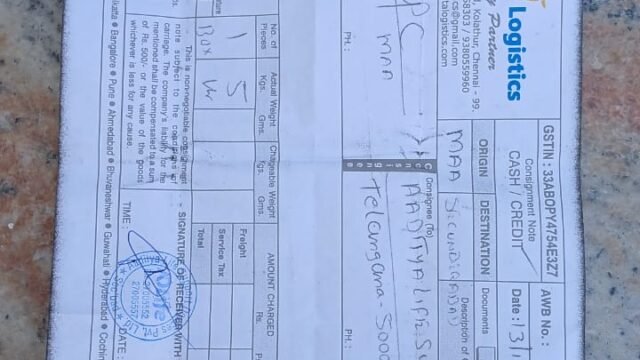 Logistics
y Partner
Kolathur, Chennai - 99.
58303 / 9380559960
cs@gmail.com
talogistics.com
GSTIN : 33ABOPY4754E3Z7
Consignment Note
CASH / CREDIT
AWB No. :
Date : 13
ORIGIN
DESTINATION
Documents
MAA
SECUNDRABAD
Description of
PC
MAA
PH. :
Consignee (To)
AADITYA LIFE S
Telangana - 500
PH. :
No. of Pieces
Actual Weight
Kgs.
Gms.
Chargeable Weight
Kgs.
Gms.
AMOUNT CHARGED
Rs.
1
Box
5
Freight
Service Tax
Total
- This is non-negotiable consignment
note subject to the conditions of
carriage. The company's liability for the
mentioned shall be compensated to a sum
of Rs. 500/- or the value of the goods
whichever is less for any cause.
- SIGNATURE OF RECEIVER WITH
TIME :
DATE :
lkatta ● Bangalore ● Pune ● Ahmedabad ● Bhuvaneshwar ● Guwahati ● Hyderabad ● Cochin